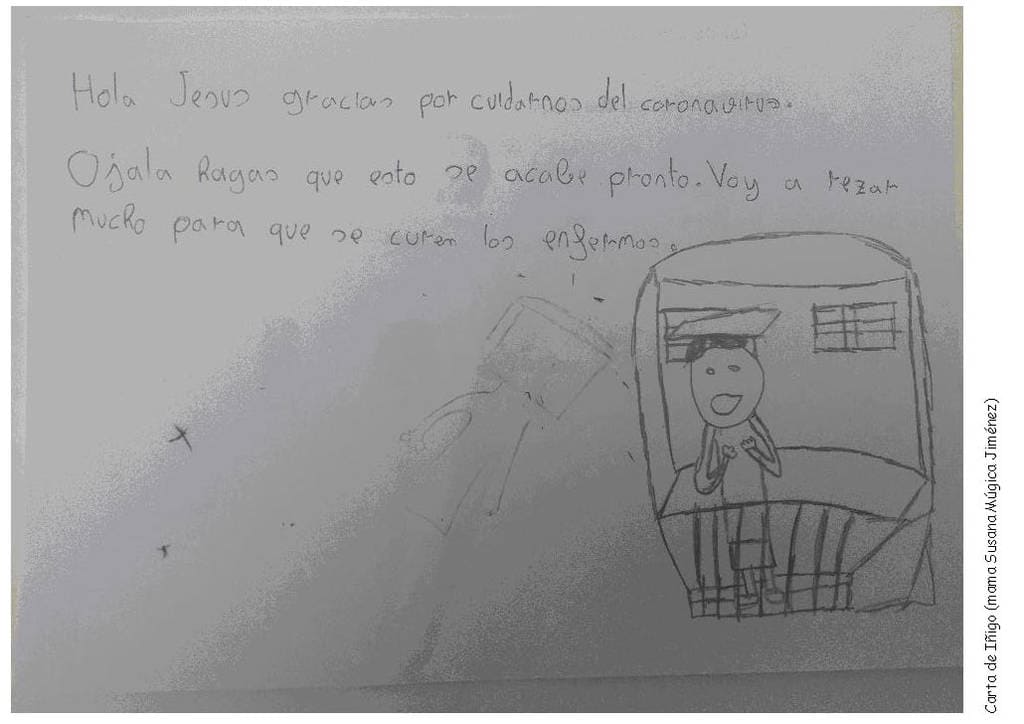 Hola Jesus gracias por cuidarnos del coronavirus.
Ojala hagas que esto se acabe pronto. Voy a rezar
mucho para que se curen los enfermos.
Carta de Iñigo (mama Susana Múgica Jiménez)